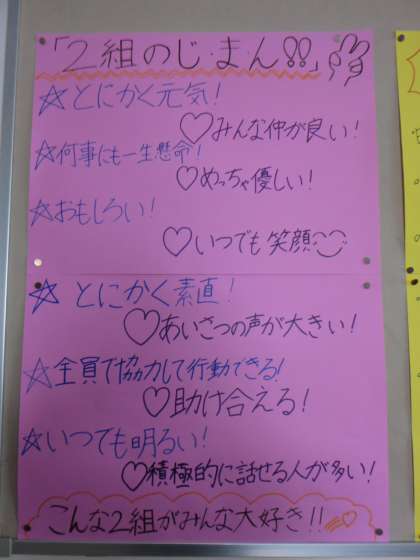 「2組のじ・ま・ん!!」
☆とにかく元気!
♡みんな仲が良い!
☆何事にも一生懸命!
♡めっちゃ優しい!
☆おもしろい!
♡いつでも笑顔
☆とにかく素直!
♡あいさつの声が大きい!
☆全員で協力して行動できる!
♡助け合える!
☆いつでも明るい!
♡積極的に話せる人が多い!
こんな2組がみんな大好き!!